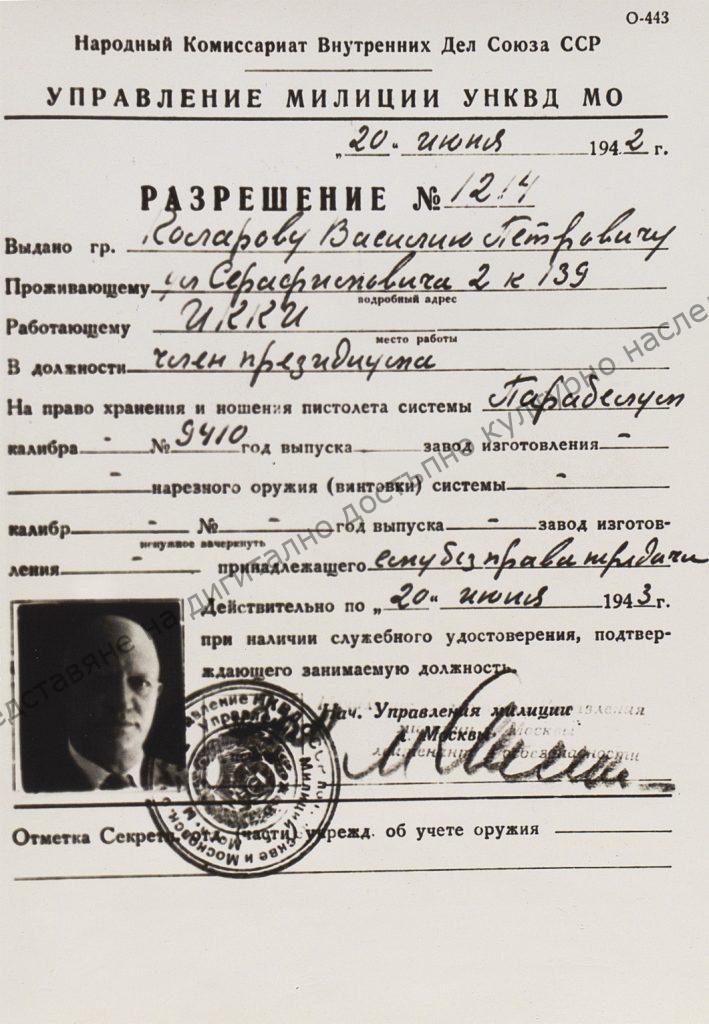 О-443
Народный Комиссариат Внутренних Дел Союза ССР
УПРАВЛЕНИЕ МИЛИЦИИ УНКВД МО
„20“ июня 1942 г.
РАЗРЕШЕНИЕ № 1214
Выдано гр. Коларову Василию Петровичу
Проживающему ул Серафимовича 2 к 139
подробный адрес
Работающему ИККИ
место работы
В должности член президиума
На право хранения и ношения пистолета системы Парабелум
калибра - № 9410 год выпуска - завод изготовления -
- нарезного оружия (винтовки) системы -
калибр - № - год выпуска - завод изготов-
ненужное зачеркнуть
ления - принадлежащего ему без права передачи
Действительно по „20“ июня 1943 г.
при наличии служебного удостоверения, подтвер-
ждающего занимаемую должность.
Нач. Управления милиции
г. Москвы
Отметка Секретн. отд. (части) учрежд. об учете оружия
дигитално достъпно културно